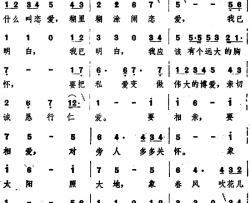 1 2 3 4 5 1 2 3 4 2 2 6 7 5 - 5 6
什么叫恋爱，糊里糊涂闹恋爱，我已
1 1 0 1 1 2 3 5 5 · 5 5 3 2 1 ·
明白，我已明白，我应该有个远大的胸
7 - · 1 1 · 6 · 6 7 · 7 1 2 3 4 5 4 3
怀，要把私爱变做伟大的博爱，亲切
2 · 6 7 1 2 · 1 - 1 - 1 6 i
诚恳行仁爱。要相亲，要
7 5 - 5 6 4 · 4 3 4 5 5 - i -
相爱，对旁人多多关怀。象
i 6 - i 7 5 - 5 6 · 4 3 2
太阳照大地，象春风吹花儿